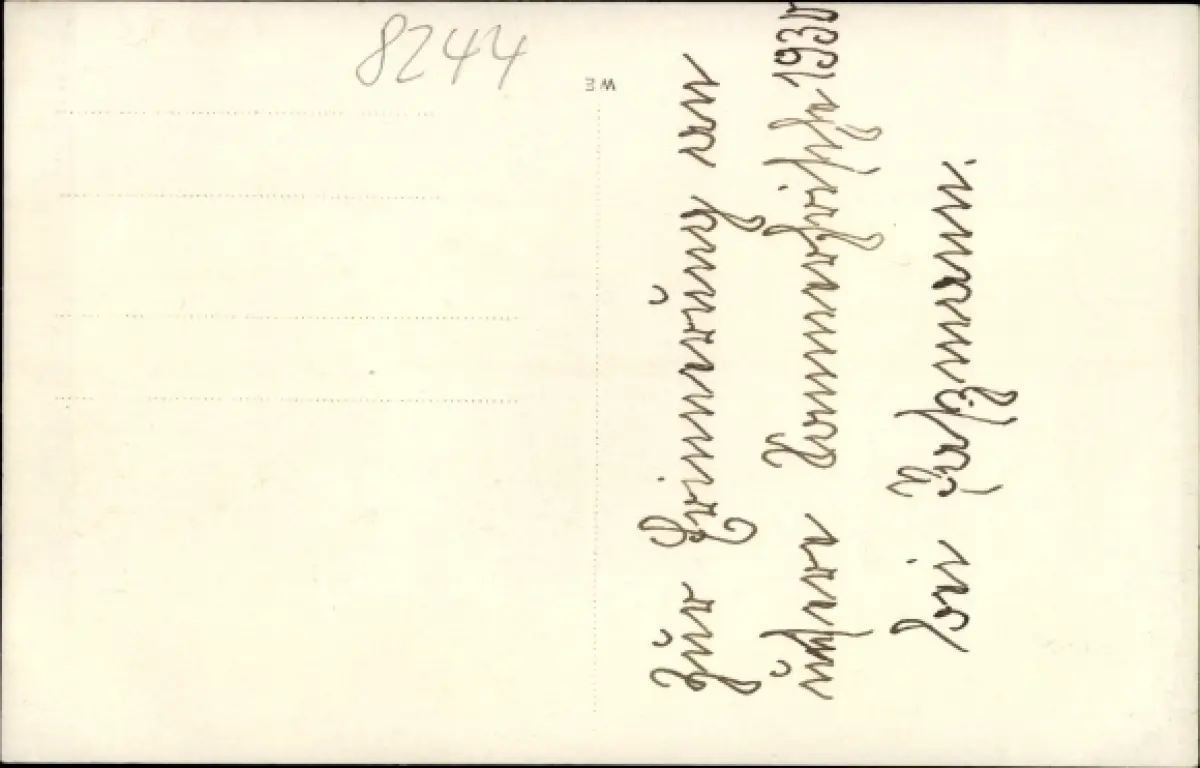 8244
Zur Erinnerung an
unsere Sommerfrische 1930
bei Putzmann.